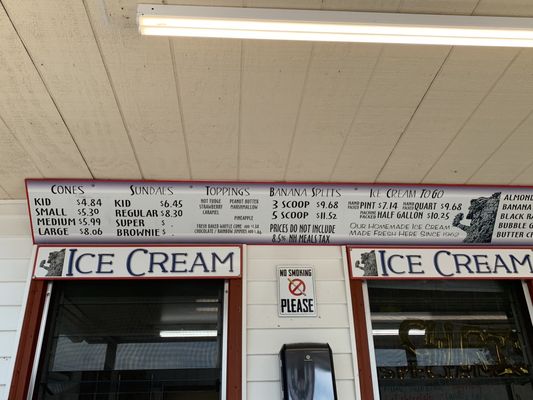 CONES
KID $4.84
SMALL $5.30
MEDIUM $5.99
LARGE $8.06
SUNDAES
KID $6.45
REGULAR $8.30
SUPER $
BROWNIE $
TOPPINGS
HOT FUDGE PEANUT BUTTER
STRAWBERRY MARSHMALLOW
CARAMEL
PINEAPPLE
FRESH BAKED WAFFLE CONE
CHOCOLATE / RAINBOW SPRINKLES
BANANA SPLITS
3 SCOOP $9.68
5 SCOOP $11.52
PRICES DO NOT INCLUDE
8.5% NH MEALS TAX
ICE CREAM TO GO
HAND PACKED PINT $7.14 HAND PACKED QUART $9.68
MACHINE PACKED HALF GALLON $10.25
OUR HOMEMADE ICE CREAM
MADE FRESH HERE SINCE 1962
ALMOND
BANANA
BLACK RA
BUBBLE G
BUTTER C
ICE CREAM
NO SMOKING
PLEASE
ICE CREAM